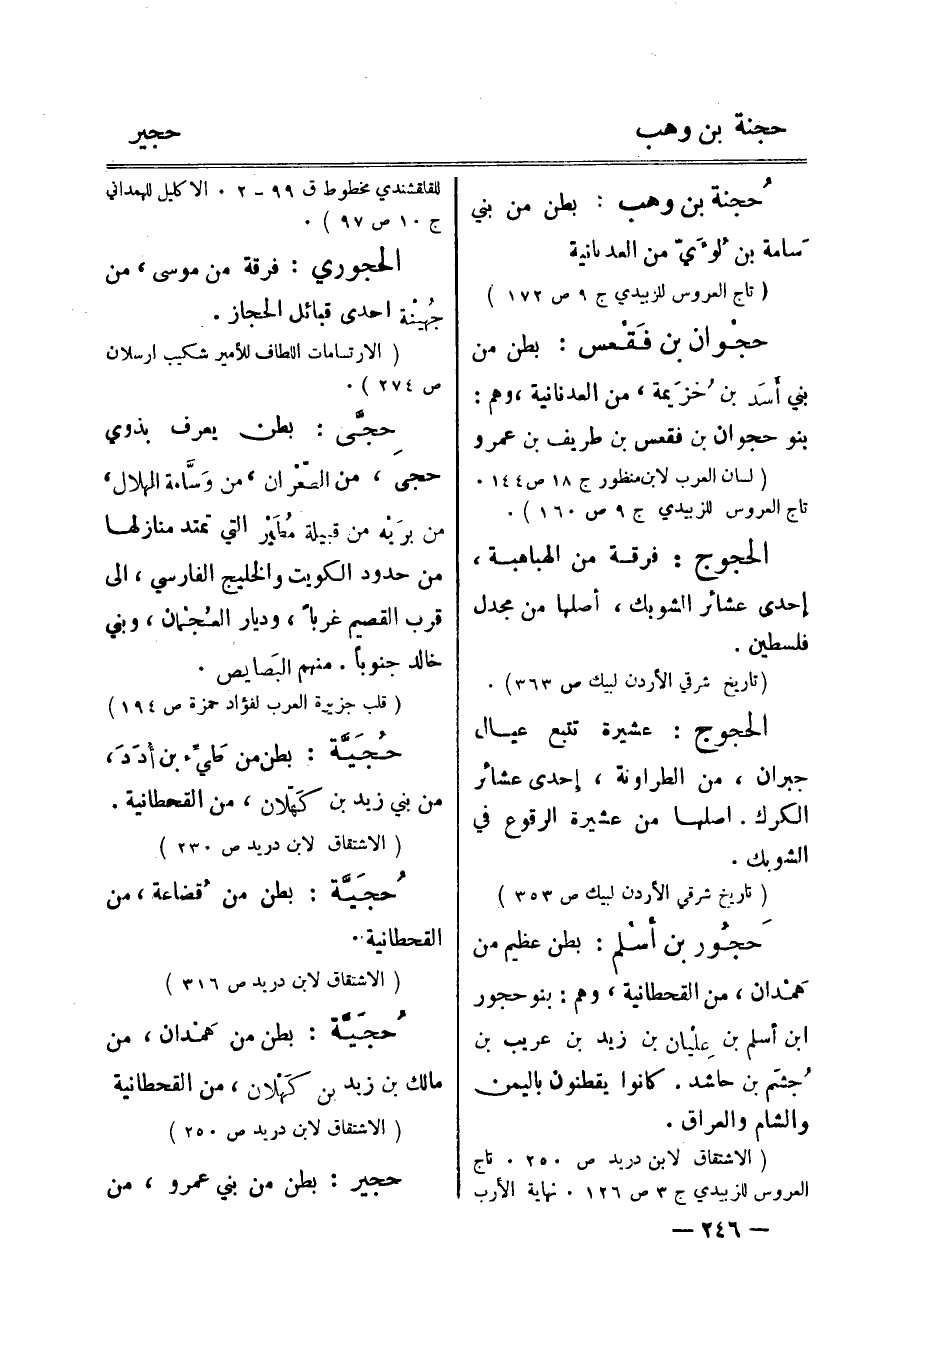 حجنة بن وهب
حجير
حُجنة بن وهب : بطن من بني
سَامة بن لُؤَيّ من العدنانية
( تاج العروس للزبيدي ج ٩ ص ١٧٢ )
حجْوان بن فَقْعس : بطن من
بني أَسَد بن خُزَيمة ، من العدنانية ، وهم :
بنو حجوان بن فقعس بن طريف بن عمرو
( لسان العرب لابن منظور ج ١٨ ص ١٤٤ ٠
تاج العروس للزبيدي ج ٩ ص ١٦٠ ) ٠
الحجوج : فرقة من الهباهبة ،
إحدى عشائر الشوبك ، أصلها من مجدل
فلسطين .
( تاريخ شرقي الأردن لبيك ص ٣٦٣ ) ٠
الحجوج : عشيرة تتبع عيال
جبران ، من الطراونة ، إحدى عشائر
الكرك . اصلها من عشيرة الرقوع في
الشوبك .
( تاريخ شرقي الأردن لبيك ص ٣٥٣ )
حَجُور بن أَسْلم : بطن عظيم من
هَمْدان ، من القحطانية ، وهم : بنو حجور
ابن أسلم بن عِلْيان بن زيد بن عريب بن
جُشَم بن حاشد . كانوا يقطنون باليمن
والشام والعراق .
( الاشتقاق لابن دريد ص ٢٥٠ ٠ تاج
العروس للزبيدي ج ٣ ص ١٢٦ ٠ نهاية الأرب
للقلقشندي مخطوط ق ٩٩ - ٢ ٠ الاكليل للهمداني
ج ١٠ ص ٩٧ ) ٠
الحجوري : فرقة من موسى ، من
جُهَيْنة احدى قبائل الحجاز .
( الارتسامات اللطاف للأمير شكيب ارسلان
ص ٢٧٤ ) ٠
حِجَّى : بطن يعرف بذوي
حجى ، من الصَّعْران ، من وَسَّامة الهلال ،
من بَرَيْه من قبيلة مُطَيْر التي تمتد منازلها
من حدود الكويت والخليج الفارسي ، الى
قرب القصيم غرباً ، وديار العُجْمان ، وبني
خالد جنوباً . منهم البَصايص ٠
( قلب جزيرة العرب لفؤاد حمزة ص ١٩٤ )
حُجَيَّة : بطن من طيء بن أُدَدَ ،
من بني زيد بن كَهْلان ، من القحطانية .
( الاشتقاق لابن دريد ص ٢٣٠ )
حُجَيَّة : بطن من قُضاعة ، من
القحطانية ٠
( الاشتقاق لابن دريد ص ٣١٦ )
حُجَيَّة : بطن من هَمْدان ، من
مالك بن زيد بن كَهْلان ، من القحطانية
( الاشتقاق لابن دريد ص ٢٥٠ )
حجير : بطن من بني عمرو ، من
— ٢٤٦ —